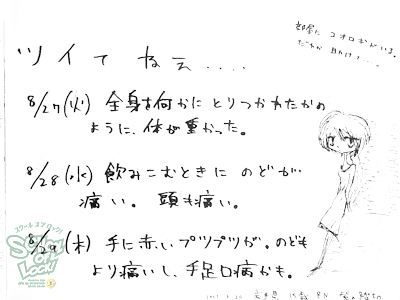 部屋に コオロギがいます。
だれか 助けて…。
ツイてねぇ....
8/27(火) 全身を何かにとりつかれたかの
ように、体が重かった。
8/28(水) 飲みこむときに のどが
痛い。 頭も痛い。
8/29(木) 手に赤いプツプツが。のども
より痛いし、手足口病かも。
スクールオブロック!
SCHOOL OF LOCK!